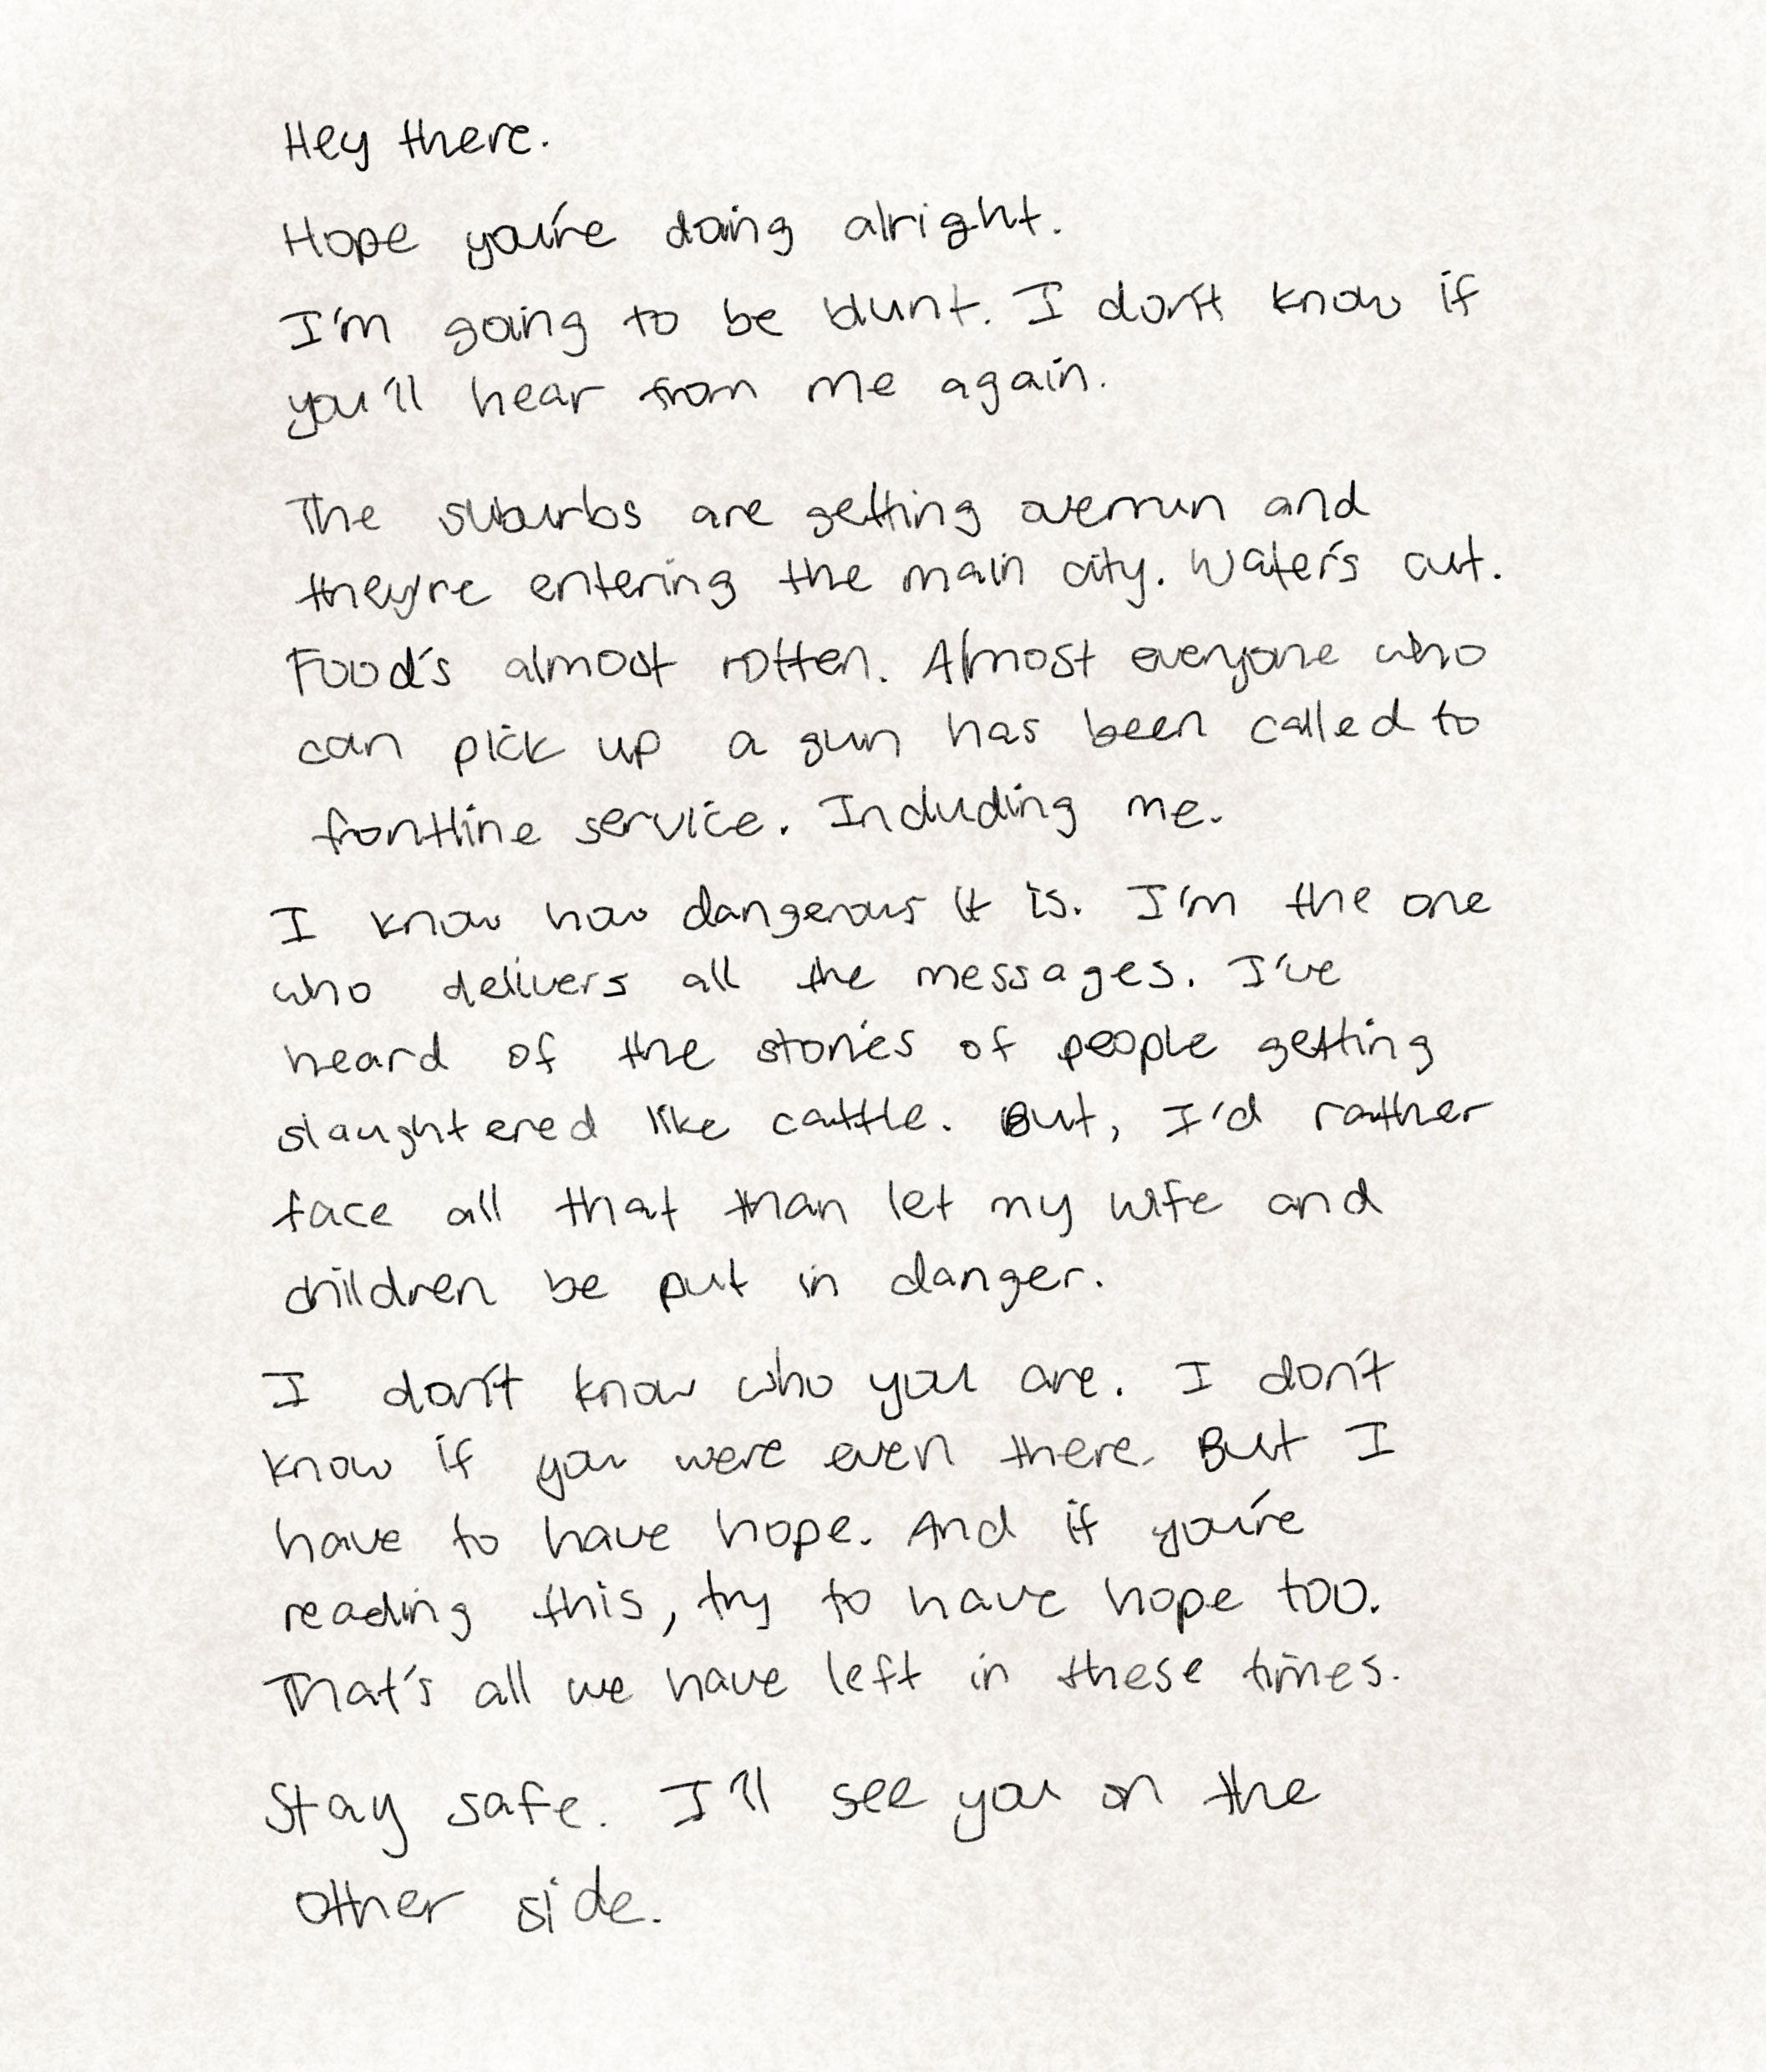 Hey there.
Hope you're doing alright.
I'm going to be blunt. I don't know if
you'll hear from me again.
The suburbs are getting overrun and
they're entering the main city. Water's cut.
Food's almost rotten. Almost everyone who
can pick up a gun has been called to
frontline service. Including me.
I know how dangerous it is. I'm the one
who delivers all the messages. I've
heard of the stories of people getting
slaughtered like cattle. But, I'd rather
face all that than let my wife and
children be put in danger.
I don't know who you are. I don't
know if you were even there. But I
have to have hope. And if you're
reading this, try to have hope too.
That's all we have left in these times.
Stay safe. I'll see you on the
other side.